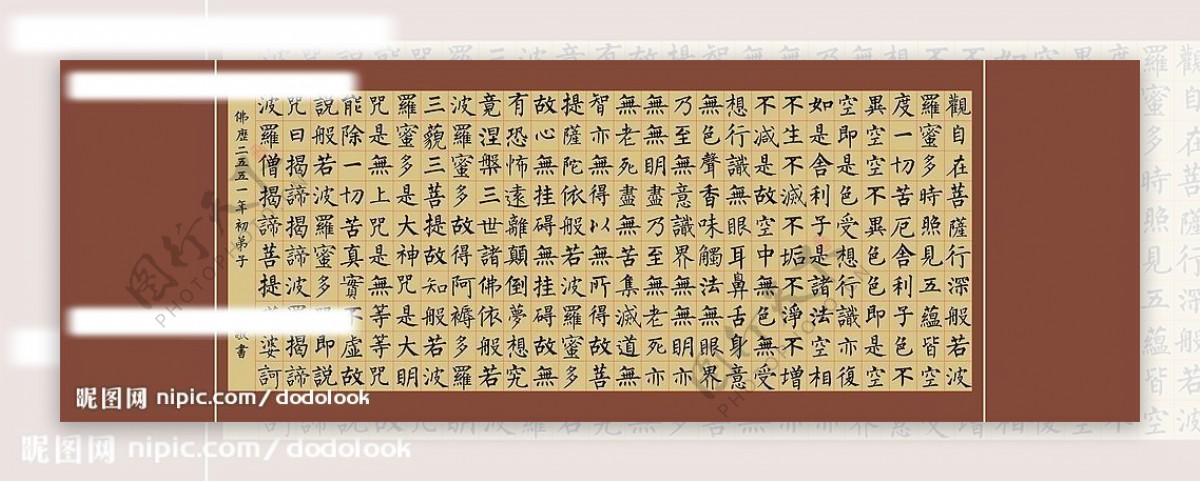 觀自在菩薩行深般若波
羅蜜多時照見五蘊皆空
度一切苦厄舍利子色不
異空空不異色色即是空
空即是色受想行識亦復
如是舍利子是諸法空相
不生不滅不垢不淨不增
不減是故空中無色無受
想行識無眼耳鼻舌身意
無色聲香味觸法無眼界
乃至無意識界無無明亦
無無明盡乃至無老死亦
無老死盡無苦集滅道無
智亦無得以無所得故菩
提薩陀依般若波羅蜜多
故心無挂碍無挂碍故無
有恐怖遠離顛倒夢想究
竟涅槃三世諸佛依般若
波羅蜜多故得阿褥多羅
三藐三菩提故知般若波
羅蜜多是大神咒是大明
咒是無上咒是無等等咒
能除一切苦真實不虛故
說般若波羅蜜多即說
咒曰揭諦揭諦波揭諦
波羅僧揭諦菩提婆訶
佛歷二五五一年初弟子
書
昵图网 nipic.com/dodolook
昵图网 nipic.com/dodolook